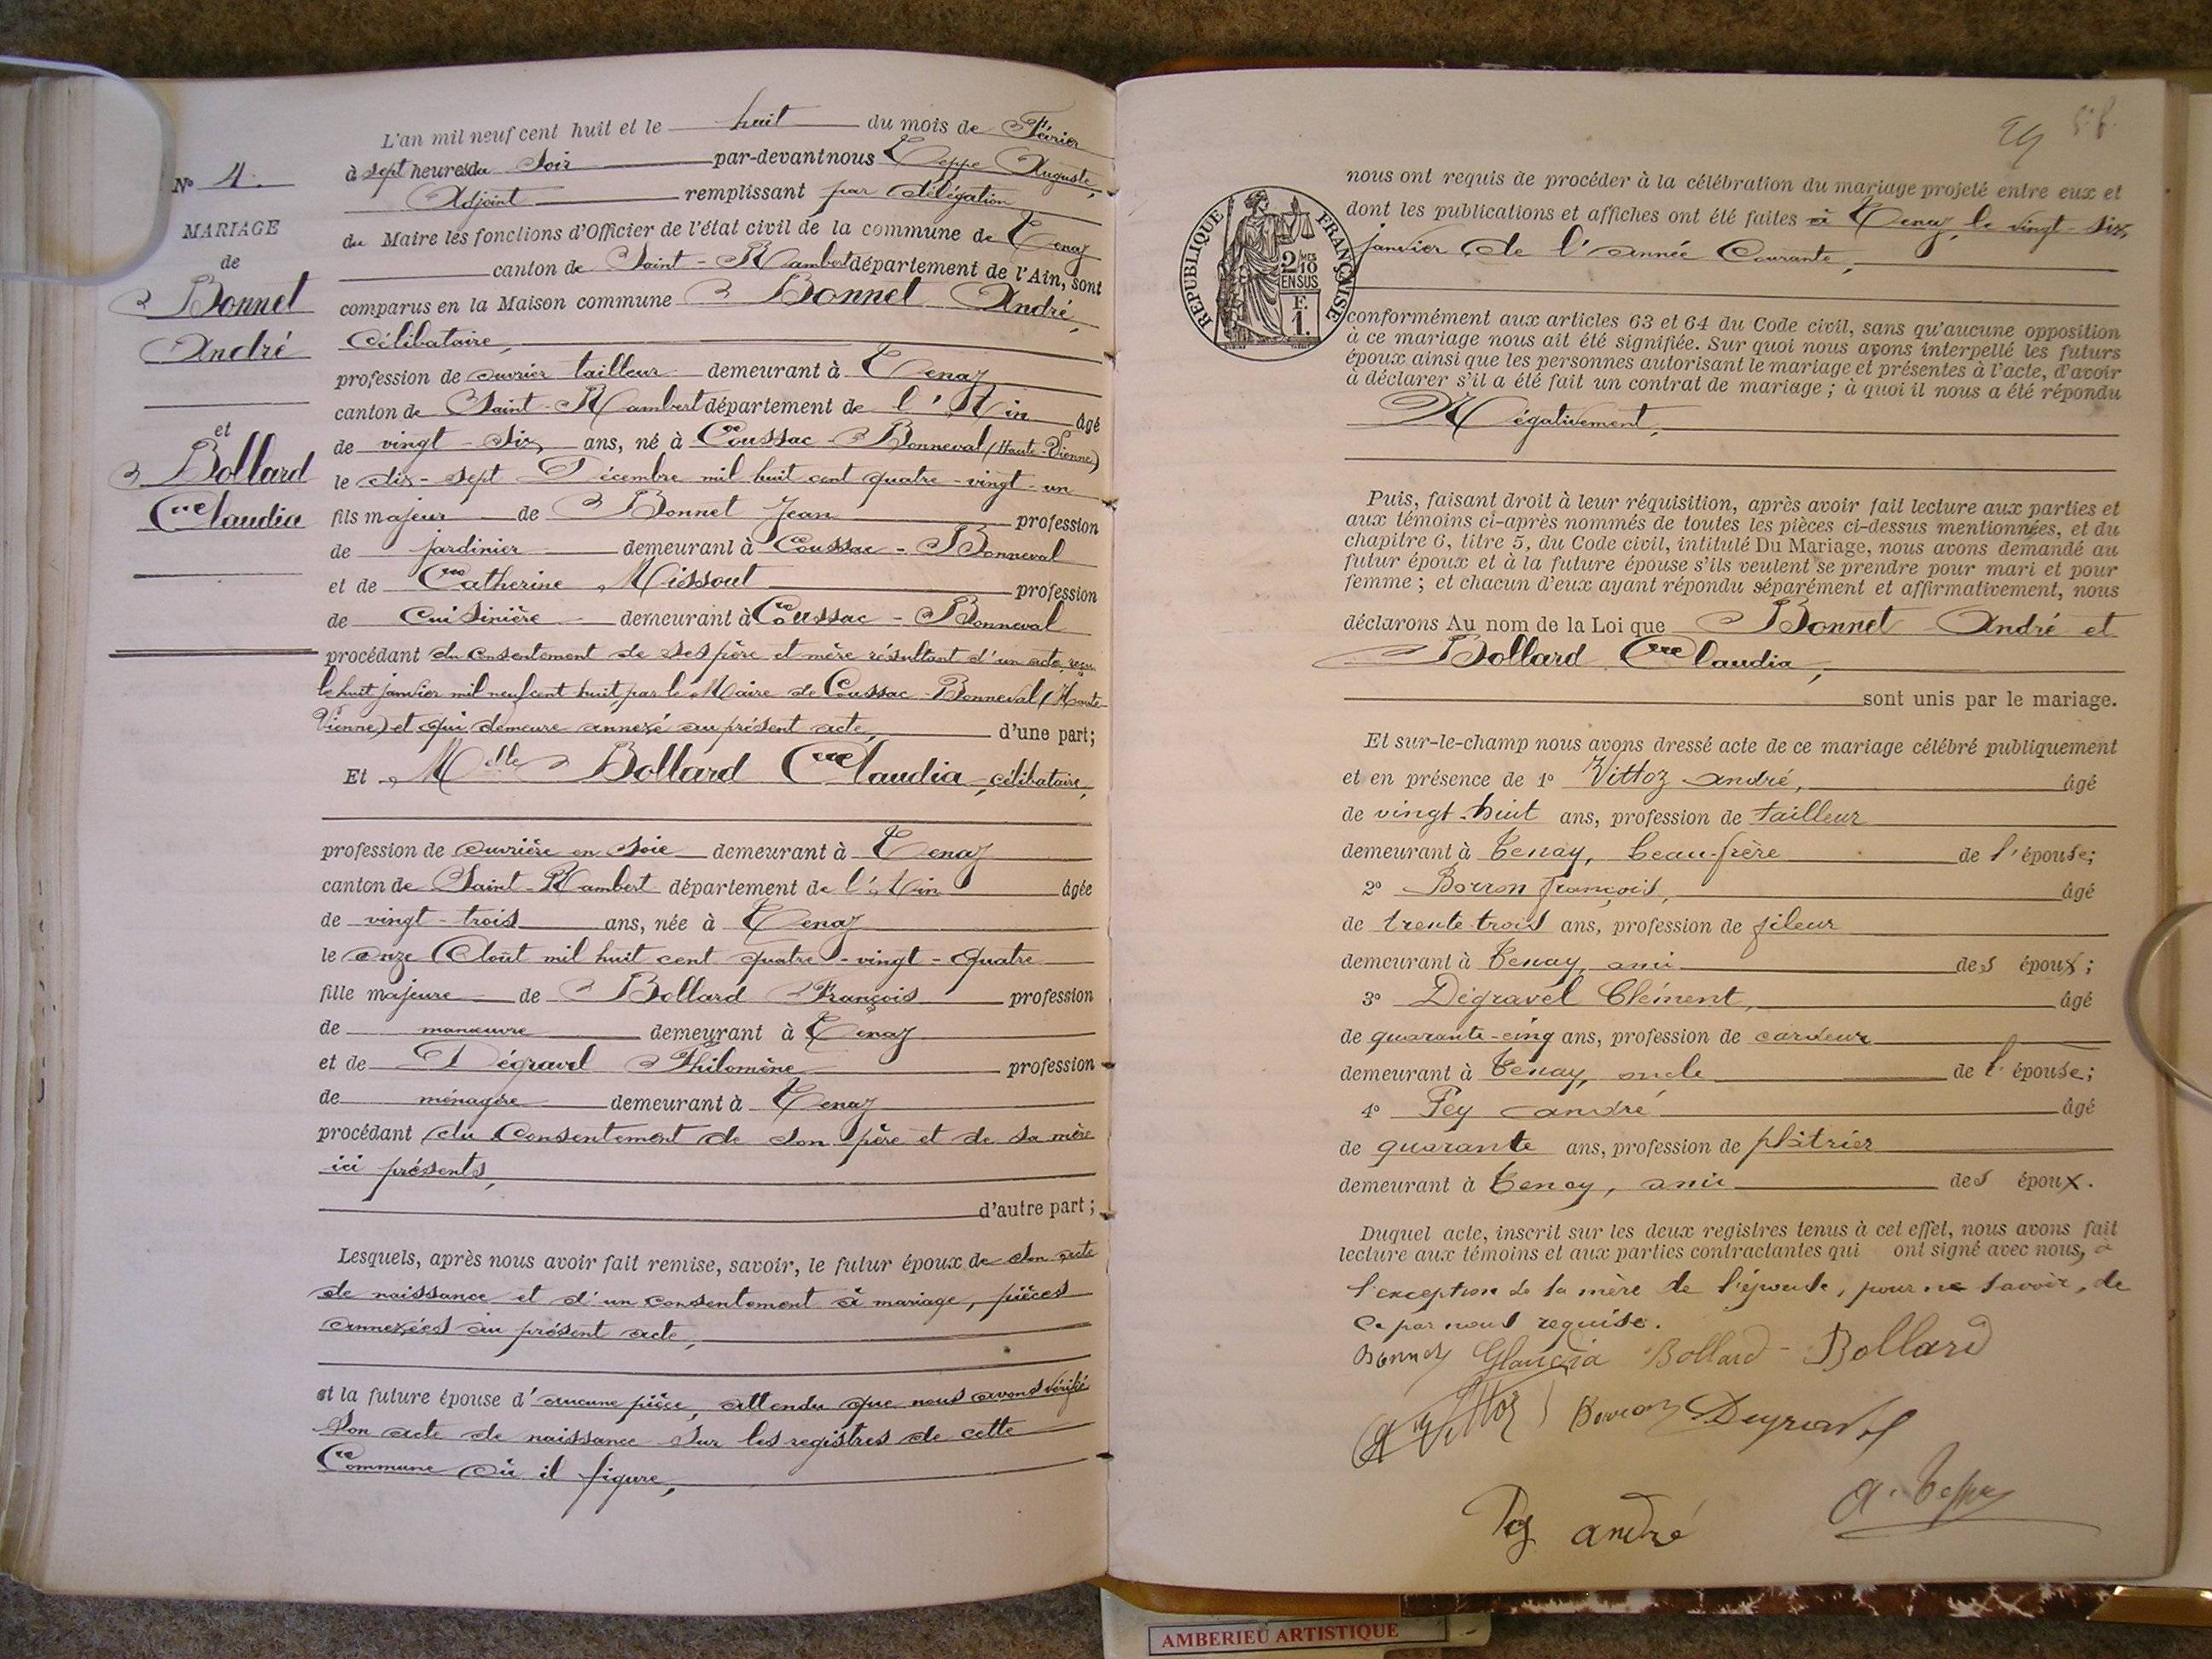 L'an mil neuf cent huit et le huit du mois de Février
à sept heures du soir par-devant nous Teppe Auguste,
Adjoint remplissant par délégation
du Maire les fonctions d'Officier de l'état civil de la commune de Tenay
canton de Saint-Rambert département de l'Ain, sont
comparus en la Maison commune Bonnet André,
Célibataire,
profession de ouvrier tailleur demeurant à Tenay
canton de Saint-Rambert département de l'Ain âgé
de vingt-six ans, né à Coussac-Bonneval (Haute-Vienne)
le dix-sept Décembre mil huit cent quatre-vingt-un
fils majeur de Bonnet Jean profession
de jardinier demeurant à Coussac-Bonneval
et de Catherine Missout profession
de Cuisinière demeurant à Coussac-Bonneval
procédant du consentement de ses père et mère résultant d'un acte reçu
le huit janvier mil neuf cent huit par le Maire de Coussac-Bonneval (Haute-
Vienne) et qui demeure annexé au présent acte, d'une part;
Et Melle Bollard Claudia, célibataire,
profession de ouvrière en soie demeurant à Tenay
canton de Saint-Rambert département de l'Ain âgée
de vingt-trois ans, née à Tenay
le onze Août mil huit cent quatre-vingt-quatre
fille majeure de Bollard François profession
de manœuvre demeurant à Tenay
et de Dégravel Philomène profession
de ménagère demeurant à Tenay
procédant du Consentement de son père et de sa mère
ici présents,
d'autre part;
Lesquels, après nous avoir fait remise, savoir, le futur époux de son acte
de naissance et d'un consentement à mariage, pièces
annexées au présent acte,
et la future épouse d'aucune pièce, attendu que nous avons vérifié
son acte de naissance sur les registres de cette
Commune où il figure,
No 4.
MARIAGE
de
Bonnet
André
et
Bollard
Claudia
29
nous ont requis de procéder à la célébration du mariage projeté entre eux et
dont les publications et affiches ont été faites à Tenay, le vingt-six
janvier de l'année Courante,
RÉPUBLIQUE FRANÇAISE
2 MES 10
EN SUS
F.
1.
conformément aux articles 63 et 64 du Code civil, sans qu'aucune opposition
à ce mariage nous ait été signifiée. Sur quoi nous avons interpellé les futurs
époux ainsi que les personnes autorisant le mariage et présentes à l'acte, d'avoir
à déclarer s'il a été fait un contrat de mariage; à quoi il nous a été répondu
Négativement,
Puis, faisant droit à leur réquisition, après avoir fait lecture aux parties et
aux témoins ci-après nommés de toutes les pièces ci-dessus mentionnées, et du
chapitre 6, titre 5, du Code civil, intitulé Du Mariage, nous avons demandé au
futur époux et à la future épouse s'ils veulent se prendre pour mari et pour
femme; et chacun d'eux ayant répondu séparément et affirmativement, nous
déclarons Au nom de la Loi que Bonnet André et
Bollard Claudia,
sont unis par le mariage.
Et sur-le-champ nous avons dressé acte de ce mariage célébré publiquement
et en présence de 1o Vittoz andré, âgé
de vingt-huit ans, profession de tailleur
demeurant à Tenay, beau-frère de l'épouse;
2o Borron françois, âgé
de trente-trois ans, profession de fileur
demeurant à Tenay, ami des époux;
3o Dégravel Clément, âgé
de quarante-cinq ans, profession de cardeur
demeurant à Tenay, oncle de l'épouse;
4o Pey andré âgé
de quarante ans, profession de plâtrier
demeurant à Tenay, ami des époux.
Duquel acte, inscrit sur les deux registres tenus à cet effet, nous avons fait
lecture aux témoins et aux parties contractantes qui ont signé avec nous, à
l'exception de la mère de l'épouse, pour ne savoir, de
ce par nous requise.
Bonnet Claudia Bollard - Bollard
A Vittoz Borron Degravel
Pey andré A. Teppe
AMBERIEU ARTISTIQUE